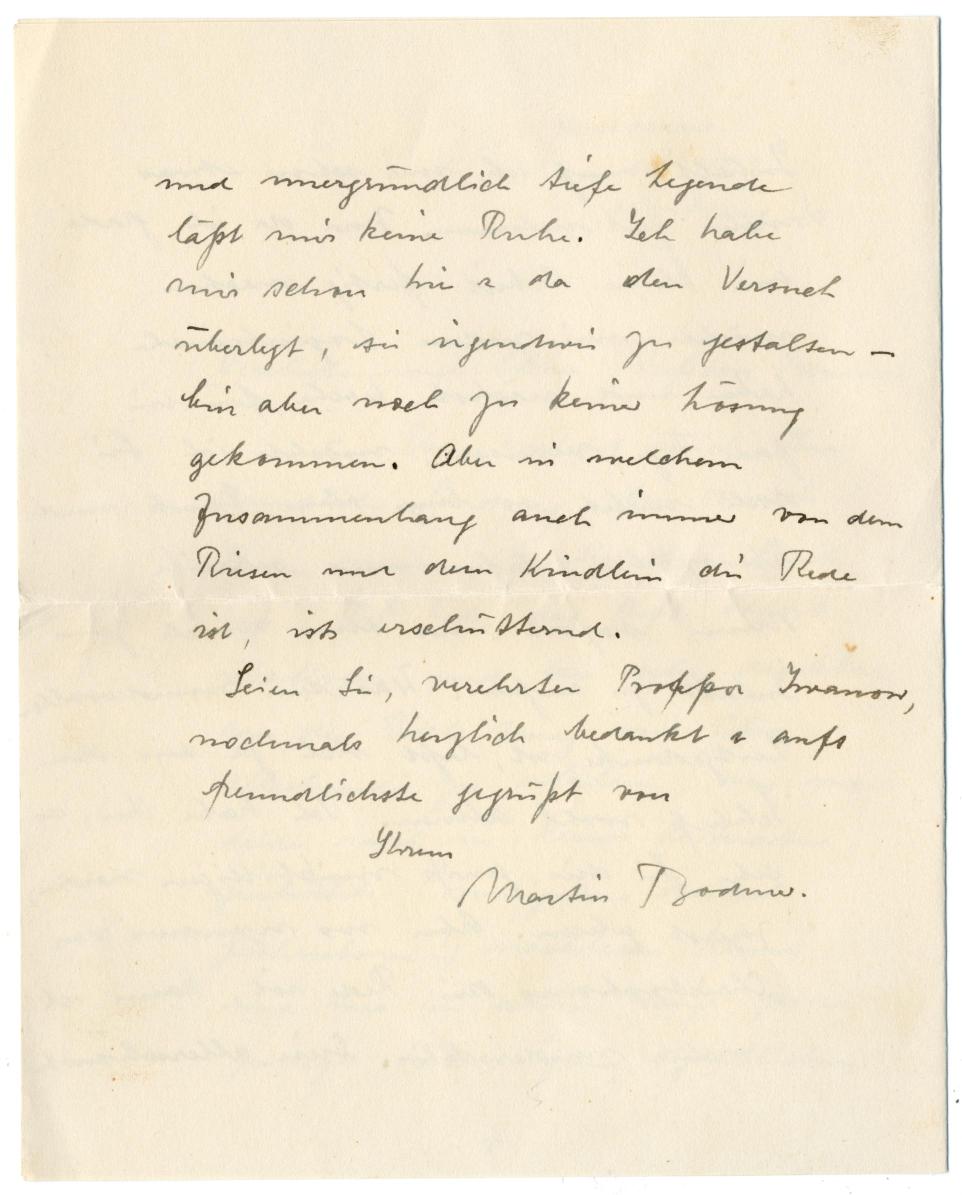 und unergründlich tiefe Legende
läßt mir keine Ruhe. Ich habe
mir schon hie & da den Versuch
überlegt, sie irgendwie zu gestalten –
bin aber noch zu keiner Lösung
gekommen. Aber in welchem
Zusammenhang auch immer von dem
Riesen und dem Kindlein die Rede
ist, ists erschütternd.
Seien Sie, verehrter Professor Iwanow,
nochmals herzlich bedankt & aufs
freundlichste gegrüßt von
Ihrem
Martin Bodmer.